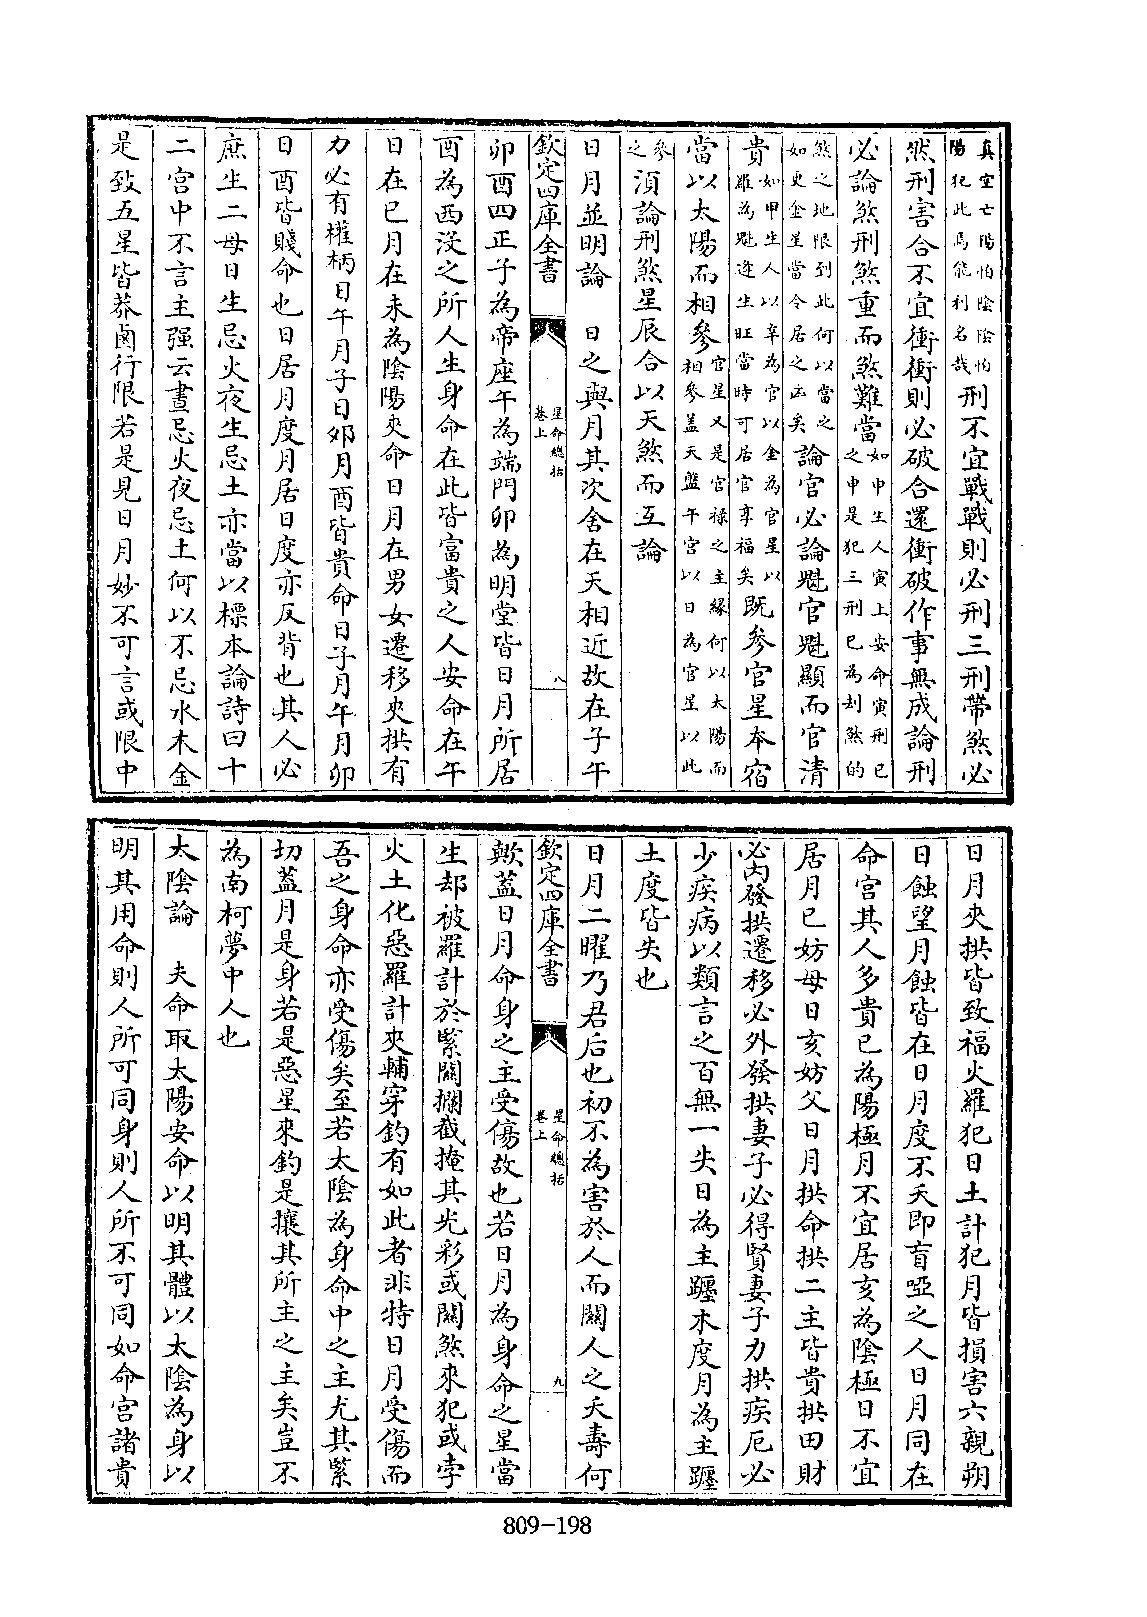 真空亡陽怕陰陰怕
陽犯此馬能利名哉刑不宜戰戰則必刑三刑帶煞必
然刑害合不宜衝衝則必破合還衝破作事無成論刑
必論煞刑煞重而煞難當如申生人寅上安命寅刑巳
之申是犯三刑巳為刦煞的
煞之地限到此何以當之
如更金星當令居之凶矣論官必論魁官魁顯而官清
貴如甲生人以辛為官以金為官星以
雖為魁逢生旺當時可居官享福矣既參官星本宿
當以太陽而相參官星又是官祿之主緣何以太陽而
相參蓋天盤午宮以日為官星以此
參
之須論刑煞星辰合以天煞而互論
日月並明論　日之與月其次舍在天相近故在子午
欽定四庫全書
星命總括
卷上
八
卯酉四正子為帝座午為端門卯為明堂皆日月所居
酉為西沒之所人生身命在此皆富貴之人安命在午
日在巳月在未為陰陽夾命日月在男女遷移夾拱有
力必有權柄日午月子日夘月酉皆貴命日子月午月卯
日酉皆賤命也日居月度月居日度亦反背也其人必
庶生二母日生忌火夜生忌土亦當以標本論詩曰十
二宮中不言主强云晝忌火夜忌土何以不忌水木金
是致五星皆莽鹵行限若是見日月妙不可言或限中
日月夾拱皆致福火羅犯日土計犯月皆損害六親朔
日蝕望月蝕皆在日月度不夭即盲啞之人日月同在
命宮其人多貴巳為陽極月不宜居亥為陰極日不宜
居月巳妨母日亥妨父日月拱命拱二主皆貴拱田財
必內發拱遷移必外發拱妻子必得賢妻子力拱疾厄必
少疾病以類言之百無一失日為主躔木度月為主躔
土度皆失也
日月二曜乃君后也初不為害於人而關人之夭壽何
欽定四庫全書
星命總括
卷上
九
歟蓋日月命身之主受傷故也若日月為身命之星當
生却被羅計於緊關攔截掩其光彩或關煞來犯或孛
火土化惡羅計夾輔穿釣有如此者非特日月受傷而
吾之身命亦受傷矣至若太陰為身命中之主尤其緊
切蓋月是身若是惡星來釣是攘其所主之主矣豈不
為南柯夢中人也
太陰論　夫命取太陽安命以明其體以太陰為身以
明其用命則人所可同身則人所不可同如命宮諸貴
809-198